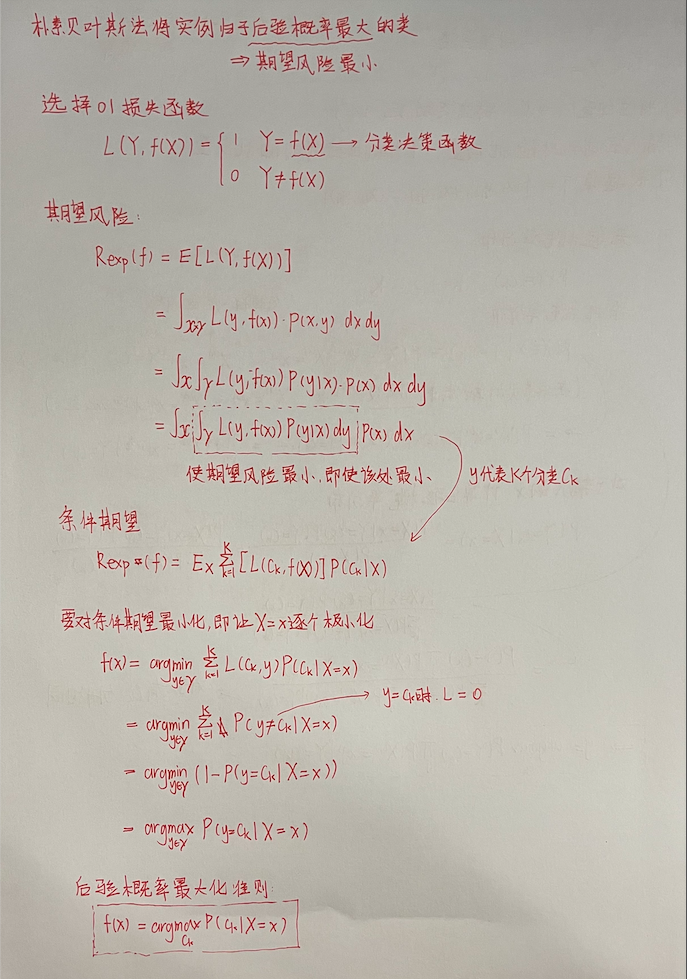 朴素贝叶斯法将实例归于后验概率最大的类
⇒ 期望风险最小
选择01损失函数
L(Y, f(X)) = { 1 Y = f(X) → 分类决策函数
0 Y ≠ f(X)
期望风险:
Rexp(f) = E[L(Y, f(X))]
= ∫x×y L(y, f(x))·P(x,y) dx dy
= ∫x∫y L(y, f(x)) P(y|x)·P(x) dx dy
= ∫x ∫y L(y, f(x)) P(y|x) dy P(x) dx
使期望风险最小, 即使该处最小
y代表K个分类Ck
条件期望
Rexp(f) = Ex ∑k=1K [L(Ck, f(X))] P(Ck|X)
要对条件期望最小化, 即让X=x逐个极小化
f(x) = argmin y∈Y ∑k=1K L(Ck, y) P(Ck|X=x)
y=Ck时. L=0
= argmin y∈Y ∑k=1K P(y≠Ck|X=x)
= argmin y∈Y (1-P(y=Ck|X=x))
= argmax y∈Y P(y=Ck|X=x)
后验概率最大化准则:
f(x) = argmax Ck P(Ck|X=x)